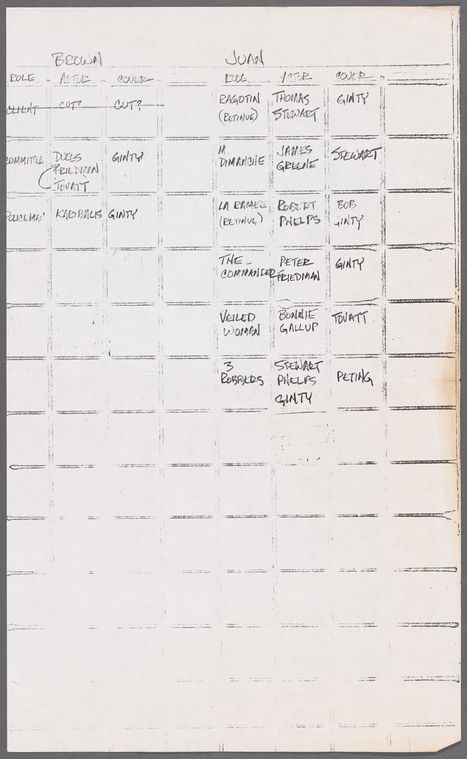 BROWN JUAN
ROLE ACTOR COVER ROLE ACTOR COVER
CLIENT CUT? CUT? RAGOTIN THOMAS GINTY
(RETINUE) STEWART
COMMITTEE GINTY M. JAMES STEWART
FRIEDMAN DIMANCHE GREENE
TOVATT
POLICEMAN GINTY LA RAMEE ROBERT BOB
(RETINUE) PHELPS GINTY
THE PETER GINTY
COMMANDER FRIEDMAN
VEILED BONNIE TOVATT
WOMAN GALLUP
3 STEWART
ROBBERS PHELPS PETING
GINTY